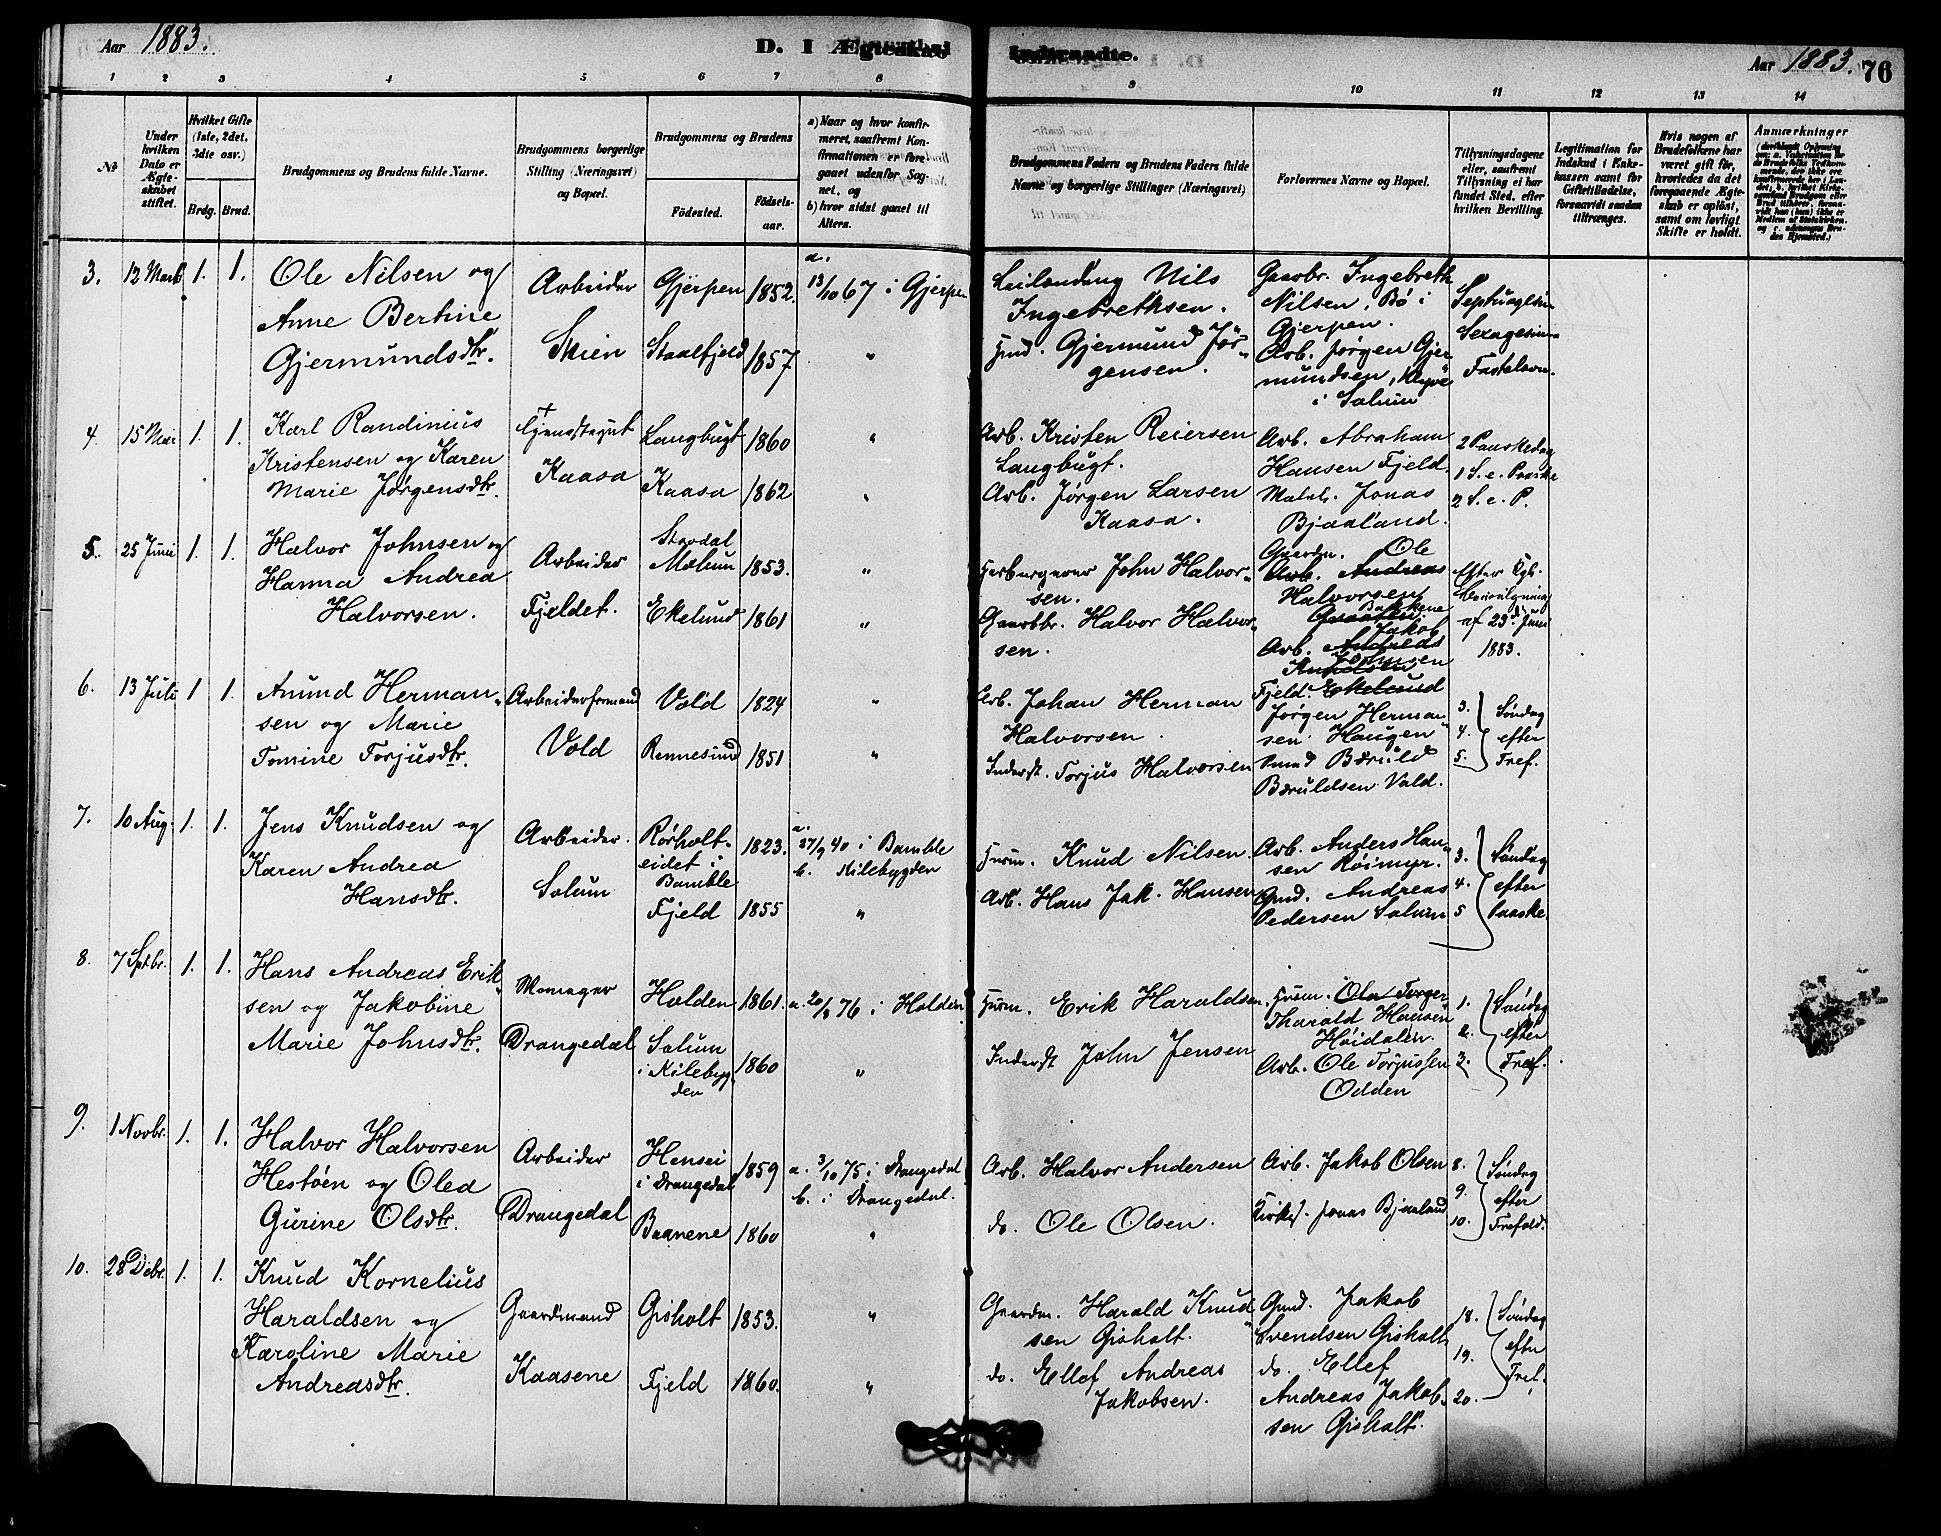 Aar 1883.
D. I Ægteskab
Indtraadte.
Aar 1883. 76
1 2 3 4 5 6 7 8 9 10 11 12 13 14
№
Under
hvilken
Dato er
Ægte-
skabet
stiftet.
Hvilket Gifte
(1ste, 2det,
3die osv.)
Brdg. Brud.
Brudgommens og Brudens fulde Navne.
Brudgommens borgerlige
Stilling (Næringsvei)
og Bopæl.
Brudgommens og Brudens
Fødested.
Fødsels-
aar.
a) Naar og hvor konfir-
meret, saafremt Kon-
firmationen er fore-
gaaet udenfor Sog-
net, og
b) hvor sidst gaaet til
Alters.
Brudgommens Faders og Brudens Faders fulde
Navne og borgerlige Stillinger (Næringsvei)
Forlovernes Navne og Bopæl.
Tillysningsdagene
eller, saafremt
Tillysning ei har
fundet Sted, efter
hvilken Bevilling.
Legitimation for
Indskud i Enke-
kassen samt for
Giftetilladelse,
forsaavidt saadan
tiltrænges.
Hvis nogen af
Brudefolkene har
været gift før,
hvorledes da det
foregaaende Ægte-
skab er opløst,
samt om lovligt
Skifte er holdt.
Anmærkninger
3. 12 Marts 1. 1.
Ole Nilsen og
Anne Bertine
Gjermundsdtr.
Arbeider
Skien
Gjerpen 1852.
Staalfjeld 1857
a.
13/10 67 i Gjerpen
"
Leilending Nils
Ingebrethsen.
Hmd. Gjermund Jör-
gensen.
Gaarbr. Ingebreth
Nilsen, Bö i
Gjerpen.
Arb. Jørgen Gjer-
mundsen, Klyve
i Solum
Septuagesim
Sexagesima
Fastelavn.
4. 15 Mai 1. 1.
Karl Randinius
Kristensen og Karen
Marie Jørgensdtr.
Tjenestegut
Kaasa
Langbugt 1860
Kaasa 1862
"
"
Arb. Kristen Reiersen
Langbugt.
Arb. Jørgen Larsen
Kaasa.
Arb. Abraham
Hansen Fjeld.
Jonas
Bjaaland.
2 Paaskedag
1 S. e. Paaske
2 S. e. P.
5. 25 Juni 1. 1.
Halvor Johnsen og
Hanna Andrea
Halvorsen.
Arbeider
Fjeldet.
Stavdal
Mælum 1853.
Ekelund 1861
"
"
John Halvor-
sen.
Gaardbr. Halvor Halvor-
sen.
Gaardm. Ole
Arb. Andreas
Halvorsen
Bakkene
Jakob
Arb. Andreas
Johnsen
Fjeld. Ekelund
Efter Kgl.
Bevilgning
af 23d Juni
1883.
6. 13 Juli 1 1.
Anund Herman-
sen og Marie
Tomine Torjusdtr.
Arbeiderformand
Vold
Vold 1824
Rennesund 1851
"
"
Arb. Johan Herman
Halvorsen.
Inderst. Torjus Halvorsen
Jørgen Herman-
sen Haugen
Smed Bæruld
Bæruldsen Vold.
3. Søndag
4. efter
5. Tref.
7. 10 Aug. 1. 1.
Jens Knudsen og
Karen Andrea
Hansdtr.
Arbeider.
Solum
Rørholt-
eidet i
Bamble 1823.
Fjeld 1855
a.
27/9 40 i Bamble
b. Kilebygden
"
Husm. Knud Nilsen.
Arb. Hans Jak. Hansen
Arb. Anders Han-
sen Röimyr.
Gmd. Andreas
Pedersen Solum
3. Søndag
4. efter
5 Paaske.
8. 7 Septbr. 1. 1.
Hans Andreas Erik-
sen og Jakobine
Marie Johnsdtr.
Skomager
Drangedal
Holden 1861.
Solum
i Kilebyg-
den 1860
a. 20/8 76 i Holden
"
Husm. Erik Haraldsen.
Inderst John Jensen
Husm. Ola Torger
Tharald Hansen
Höidalen.
Arb. Ole Torjussen
Odden
1. Søndag
2. efter
3. Tref.
9. 1 Novbr. 1. 1.
Halvor Halvorsen
Hestöen og Olea
Gurine Olsdtr.
Arbeider
Drangedal
Hensei
i Drangedal 1859
Baanene 1860
a. 3/10 75 i Drangedal
b. i Drangedal.
"
Arb. Halvor Andersen
do. Ole Olsen.
Arb. Jakob Olsen
Kirkes. Jonas Bjaaland
8. Søndag
9. efter
10. Trefold.
10. 28 Debr. 1. 1.
Knud Kornelius
Haraldsen og
Karoline Marie
Andreasdtr.
Gaardmand
Kaasene
Gisholt 1853.
Fjeld 1860.
"
"
Gaardm. Harald Knud-
sen Gisholt.
do. Ellef Andreas
Jakobsen.
Gmd. Jakob
Svendsen Gisholt
do. Ellef
Andreas Jakob-
sen Gisholt.
18. Søndag
19. efter
20. Tref.